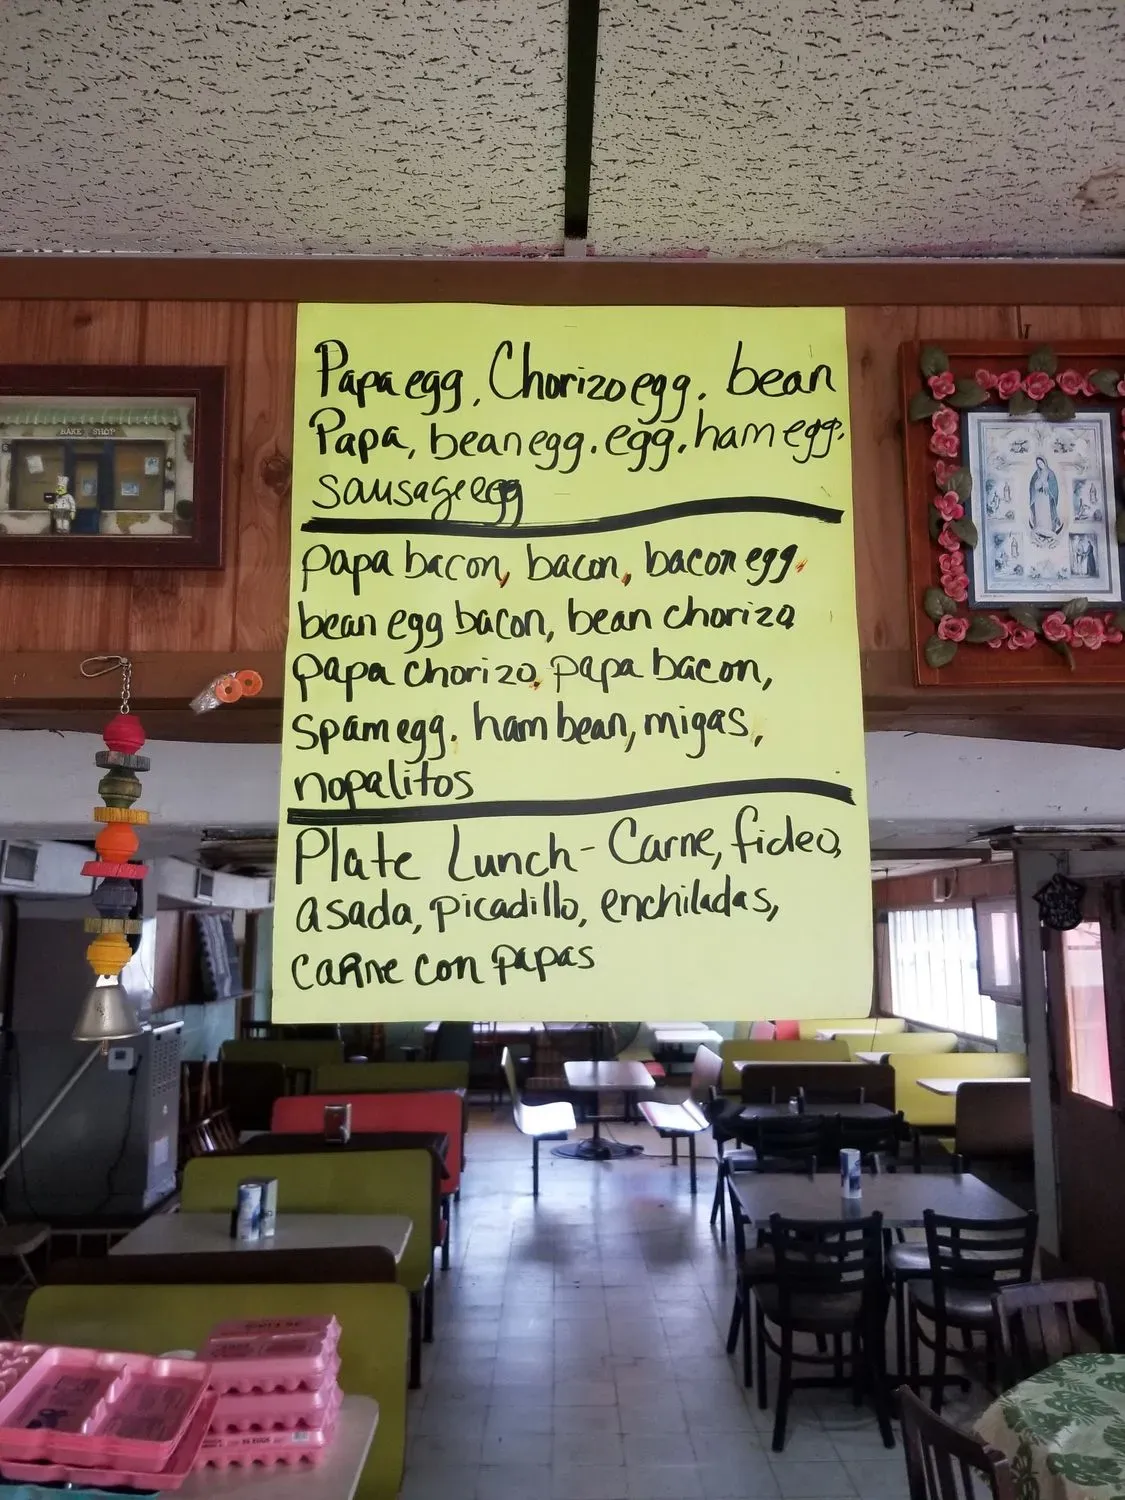 Papa egg, Chorizo egg. bean
Papa, bean egg. egg. ham egg.
sausage egg
papa bacon, bacon, bacon egg.
bean egg bacon, bean chorizo
papa chorizo, papa bacon,
spam egg. ham bean, migas,
nopalitos
Plate Lunch - Carne, fideo,
asada, picadillo, enchiladas,
carne con papas
BAKE SHOP